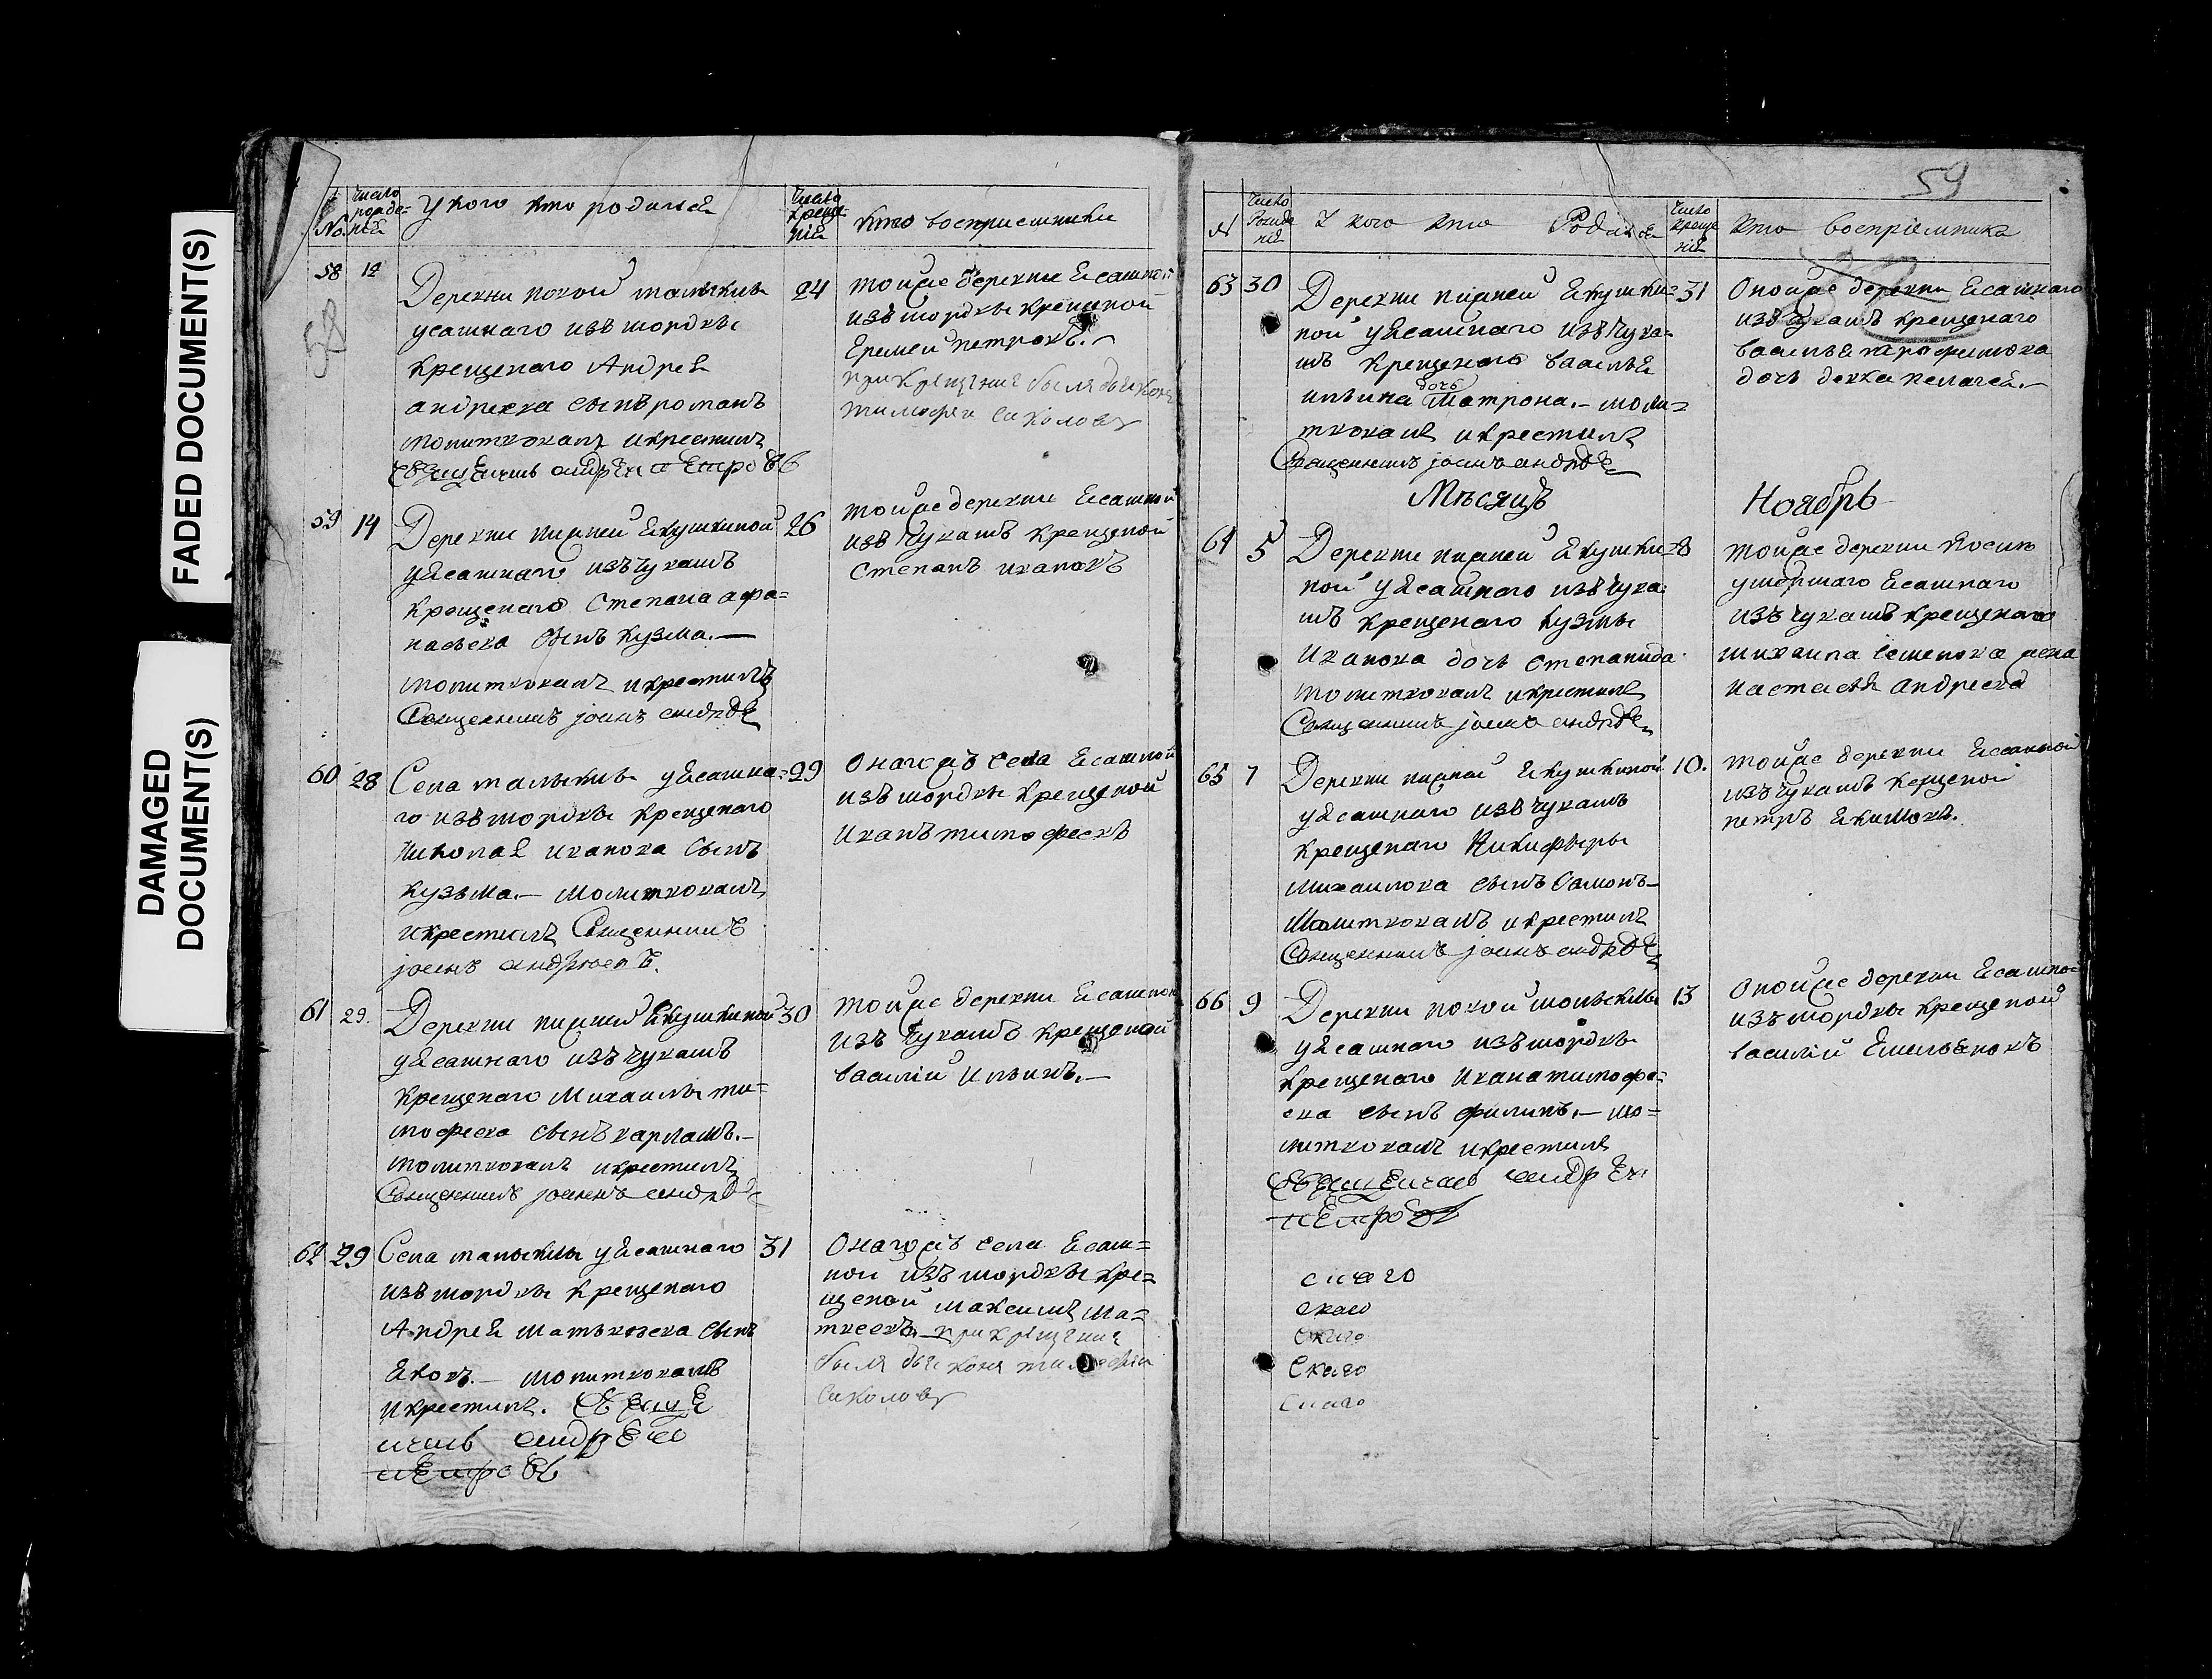 FADED DOCUMENT(S)
DAMAGED
DOCUMENT(S)
№
число рожде-
нія
У кого кто родился
число креще-
нія
кто восприемники
58 12
58
Деревни новой малыклы
уясашнаго изъ мордвы
крещенаго Андрея
андреева сынъ романъ
молитвовалъ и крестилъ
священникъ андреи петровъ
24
тойже деревни ясашной
изъ мордвы крещеной
Еремеи петровъ.
при крещение былъ дьяконъ
тимофеи соколовъ
59 14
Деревни нижней Якушкиной
уясашнаго изъ чувашъ
крещенаго Степана афа-
насьева сынъ кузма.—
молитвовалъ и крестилъ
Священникъ Іоаннъ андреевъ
26
тойже деревни ясашной
изъ чувашъ крещеной
Степанъ ивановъ
60 28
Села малыклы уясашна-
го изъ мордвы крещенаго
Николая иванова сынъ
кузьма.— молитвовалъ
и крестилъ Священникъ
Іоаннъ андреевъ.
29
Онагожъ села ясашной
изъ мордвы крещеной
иванъ тимофеевъ
61 29.
Деревни нижней Якушкиной
уясашнаго изъ чувашъ
крещенаго Михаилы ти-
мофеева сынъ варламъ.—
молитвовалъ и крестилъ
Священникъ Іоаннъ андреевъ
30
тойже деревни ясашной
изъ чувашъ крещеной
василій ильинъ.—
62 29
Села малыклы уясашнаго
изъ мордвы крещенаго
Андрея матвеева сынъ
яковъ.— молитвовалъ
и крестилъ. Священ
никъ андреи
петровъ
31
Онагожъ села ясаш-
ной изъ мордвы кре-
щеной максимъ ма-
твеевъ. при крещение
былъ дьяконъ тимофеи
соколовъ
59
№
число рожде
нія
У кого кто Родился
число креще
нія
Кто воспріемники
63 30
Деревни нижней Якушки-
ной уясашнаго изъ чува-
шъ крещенаго василья
ильина дочь Матрона.— моли-
твовалъ и крестилъ
Священникъ Іоаннъ андреевъ
31
Онойже деревни ясашнаго
изъ чувашъ крещенаго
василья
дочь девка пелагея.—
Мѣсяцъ Ноябрь
64 5
Деревни нижней Якушки-
ной уясашнаго изъ чува-
шъ крещенаго кузмы
Иванова дочь степанида
молитвовалъ и крестилъ
Священникъ Іоаннъ андреевъ
8
тойже деревни
умершаго ясашнаго
изъ чувашъ крещенаго
михаила семенова жена
настасья андреева
65 7
Деревни нижней Якушкиной
уясашнаго изъ чувашъ
крещенаго Никифоры
михаилова сынъ Самонъ—
Молитвовалъ и крестилъ
Священникъ Іоаннъ андреевъ
10.
тойже деревни ясашной
изъ чувашъ крещеной
петръ Якимовъ.
66 9
Деревни новой малыклы
уясашнаго изъ мордвы
крещенаго Ивана тимофе-
ева сынъ филипъ.— мо-
литвовалъ и крестилъ
священникъ андреи
петровъ
13
Онойже деревни ясашной
изъ мордвы крещеной
василій Емельяновъ